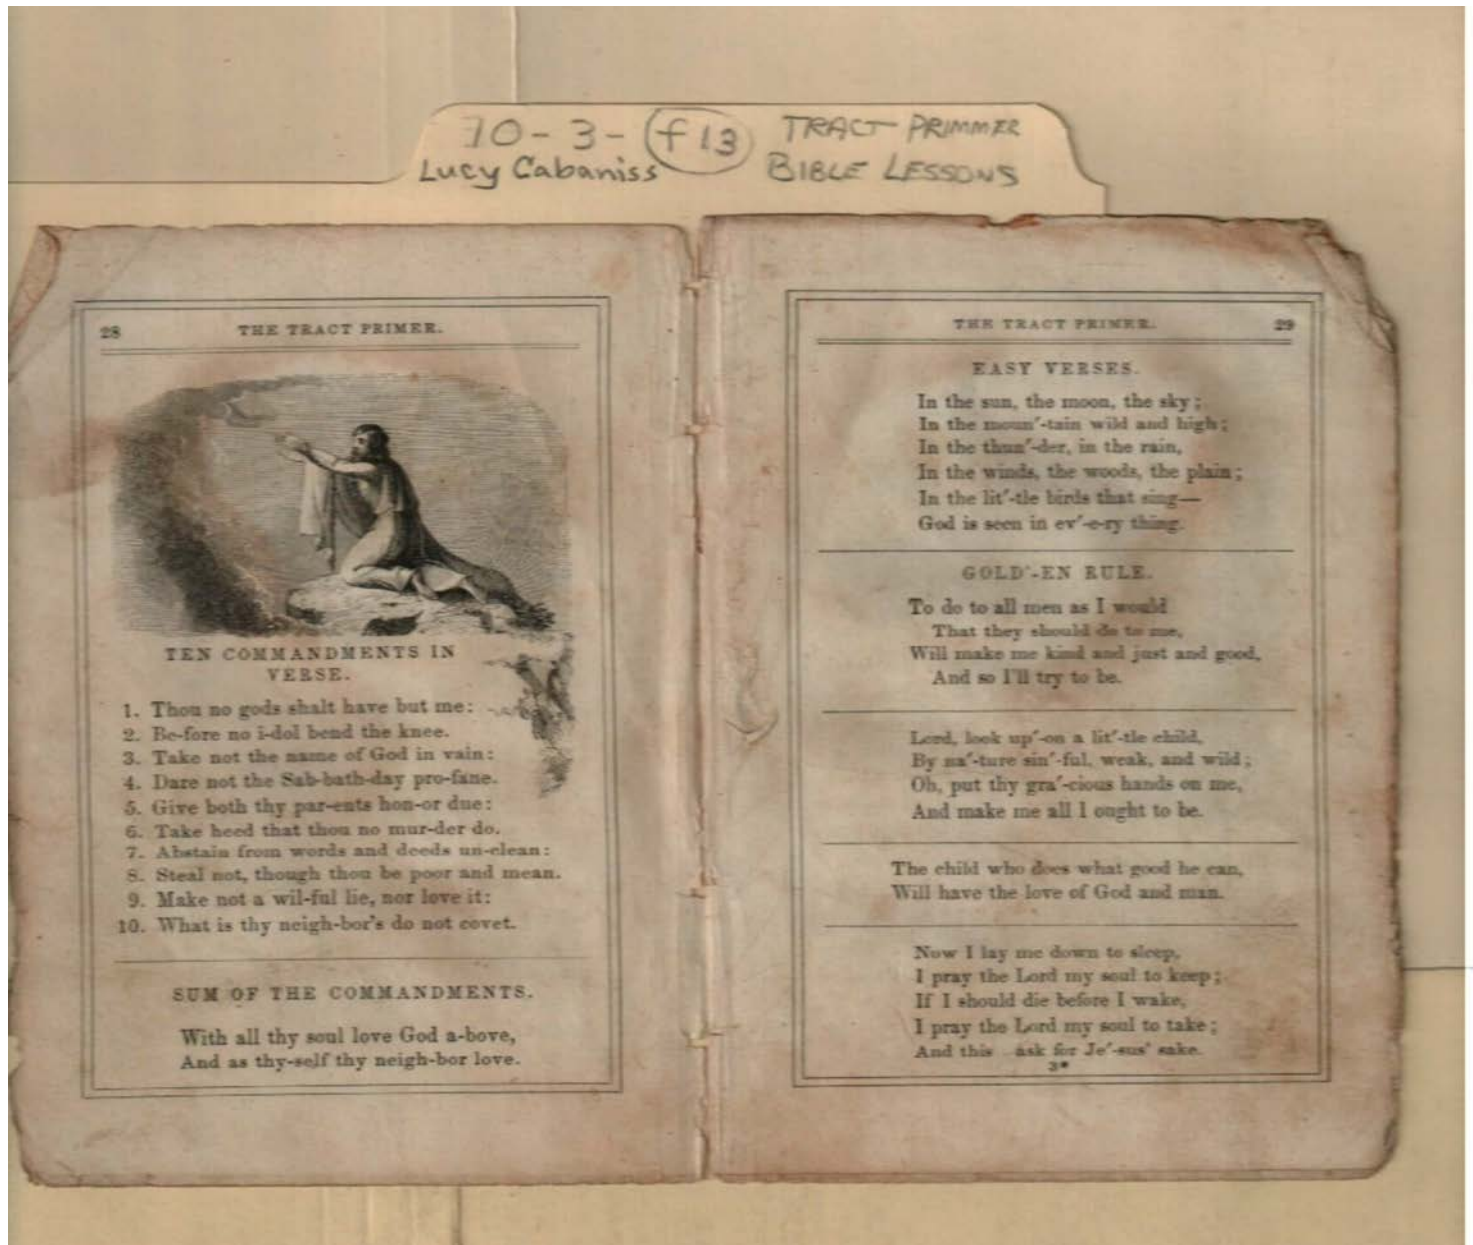 10-3- f13 TRACT PRIMMER
Lucy Cabaniss BIBLE LESSONS
28 THE TRACT PRIMER.
TEN COMMANDMENTS IN
VERSE.
1. Thou no gods shalt have but me:
2. Be-fore no i-dol bend the knee.
3. Take not the name of God in vain:
4. Dare not the Sab-bath-day pro-fane.
5. Give both thy par-ents hon-or due:
6. Take heed that thou no mur-der do.
7. Abstain from words and deeds un-clean:
8. Steal not, though thou be poor and mean.
9. Make not a wil-ful lie, nor love it:
10. What is thy neigh-bor's do not covet.
SUM OF THE COMMANDMENTS.
With all thy soul love God a-bove,
And as thy-self thy neigh-bor love.
THE TRACT PRIMER. 29
EASY VERSES.
In the sun, the moon, the sky;
In the moun'-tain wild and high;
In the thun'-der, in the rain,
In the winds, the woods, the plain;
In the lit'-tle birds that sing—
God is seen in ev'-e-ry thing.
GOLD'-EN RULE.
To do to all men as I would
That they should do to me,
Will make me kind and just and good,
And so I'll try to be.
Lord, look up'-on a lit'-tle child,
By na'-ture sin'-ful, weak, and wild;
Oh, put thy gra'-cious hands on me,
And make me all I ought to be.
The child who does what good he can,
Will have the love of God and man.
Now I lay me down to sleep,
I pray the Lord my soul to keep;
If I should die before I wake,
I pray the Lord my soul to take;
And this ask for Je'-sus' sake.
3*